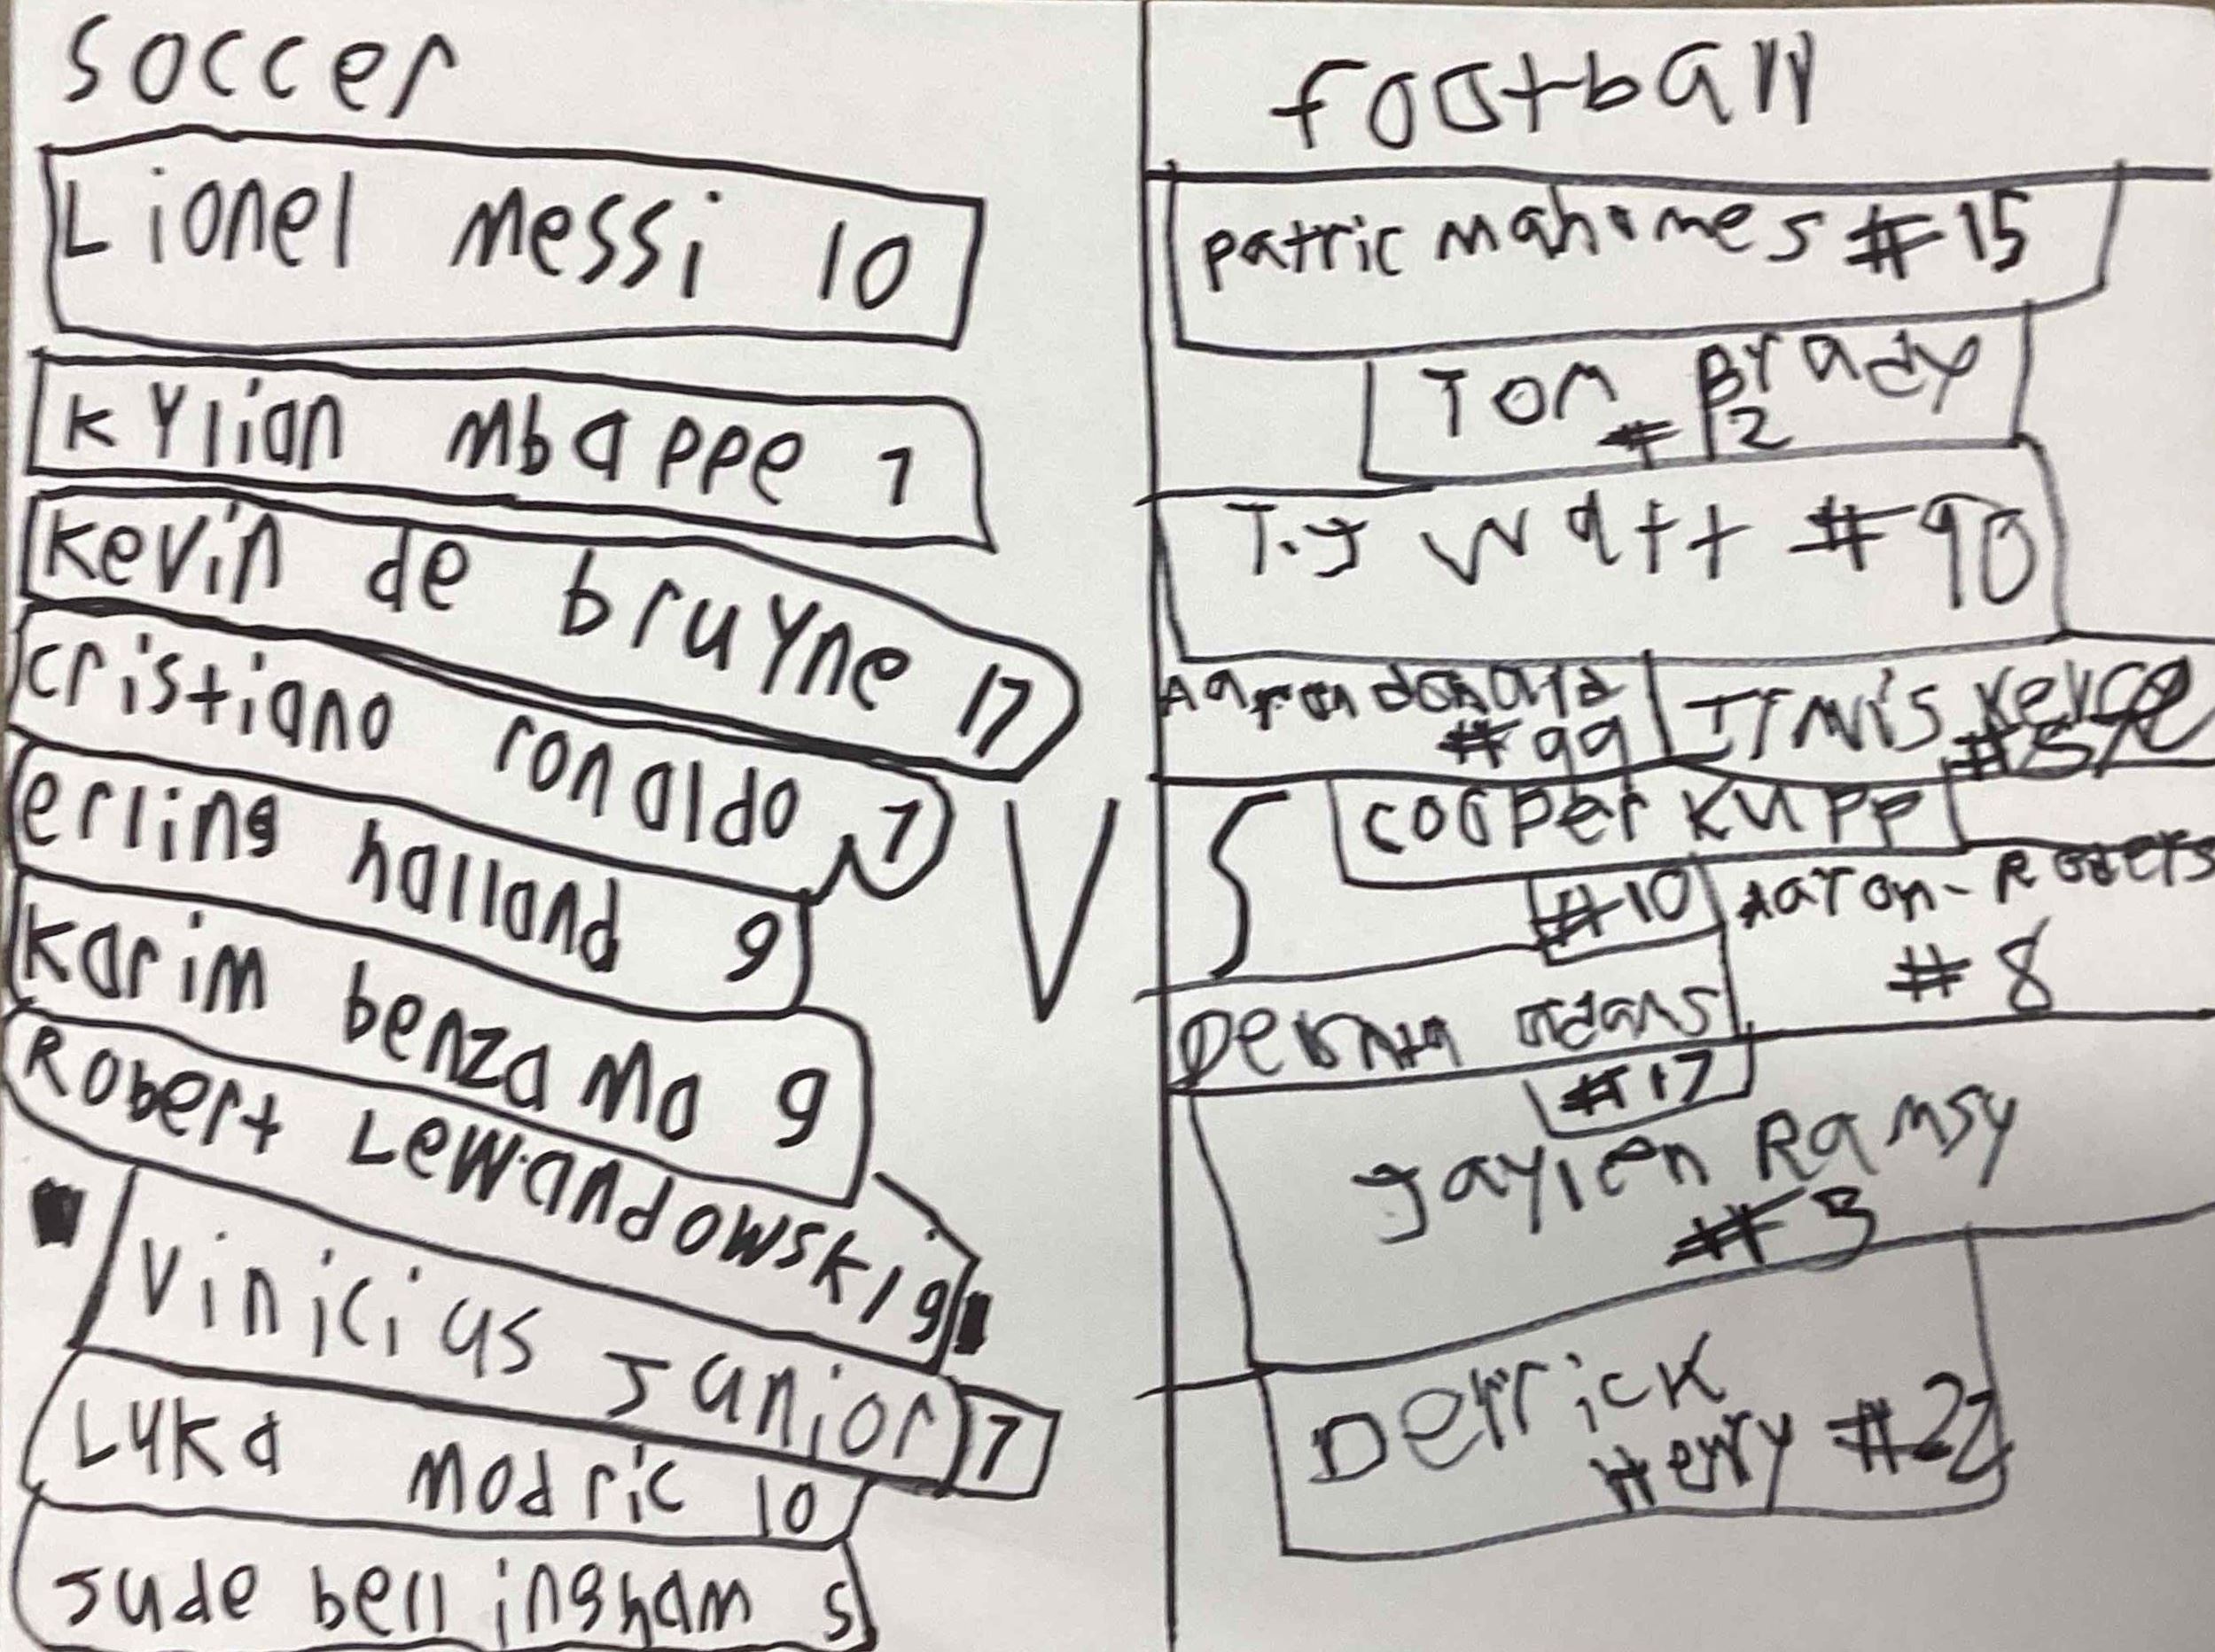 soccer
Lionel Messi 10
kylian Mbappe 7
kevin de bruyne 17
cristiano ronaldo 7
erling halland 9
karim benzama 9
Robert Lewandowski 9
Vinicius Junior 7
Luka Modric 10
Jude bellingham 5
VS
football
Patric mahomes #15
Tom Brady
#12
T.J Watt #90
Aaron donald
#99
kelce
#87
cooper kupp
#10
Aaron-Rogers
#8
adams
#17
Jaylen Ramsy
#3
Derrick
Henry #22